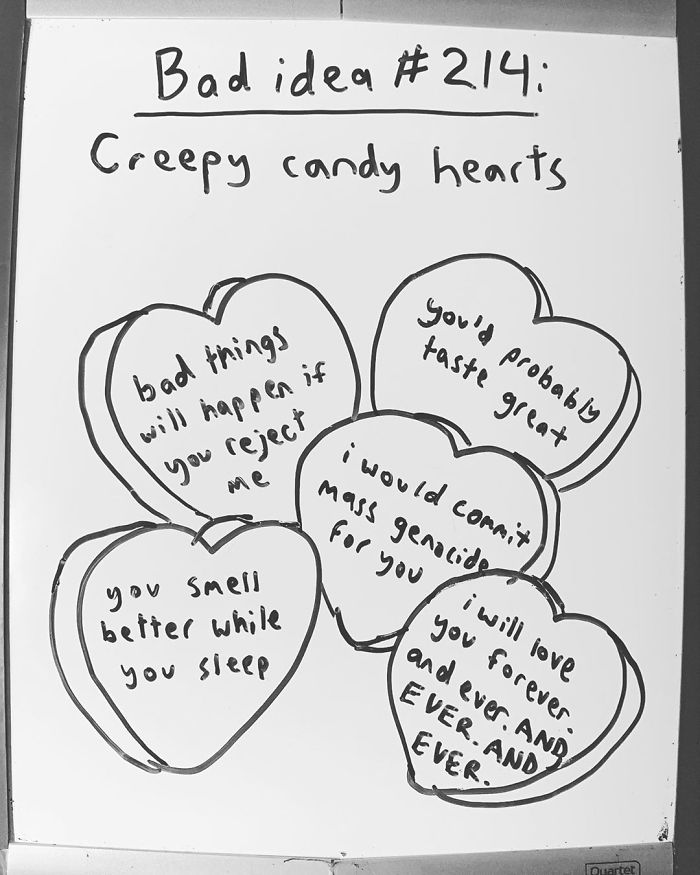 Bad idea #214:
Creepy candy hearts
bad things
will happen if
you reject
me
you'd probably
taste great
i would commit
mass genocide
for you
you smell
better while
you sleep
i will love
you forever.
and ever. AND
EVER. AND
EVER.
Quartet